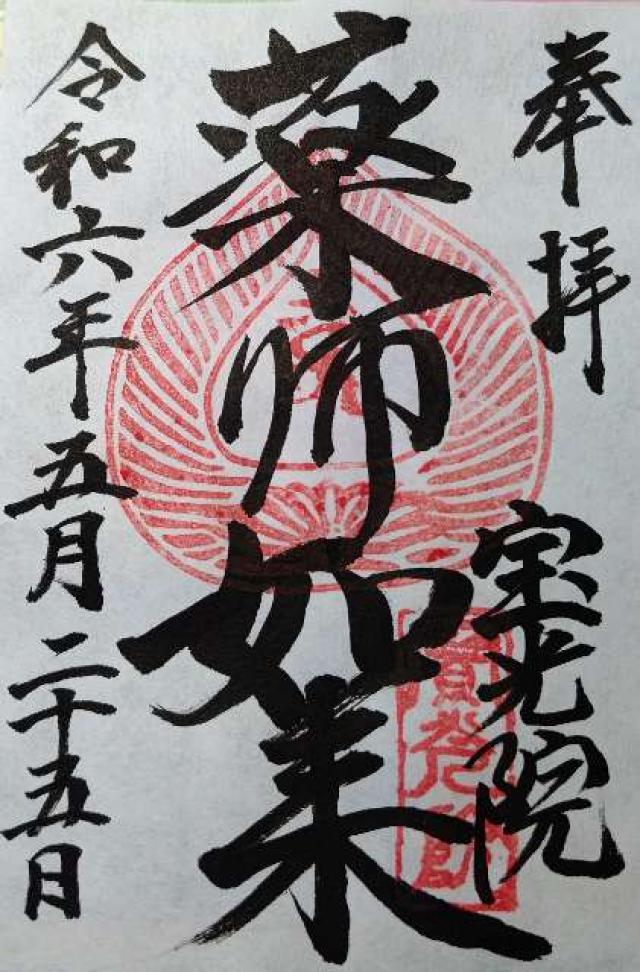 奉拝
宝光院
薬師如来
令和六年五月二十五日